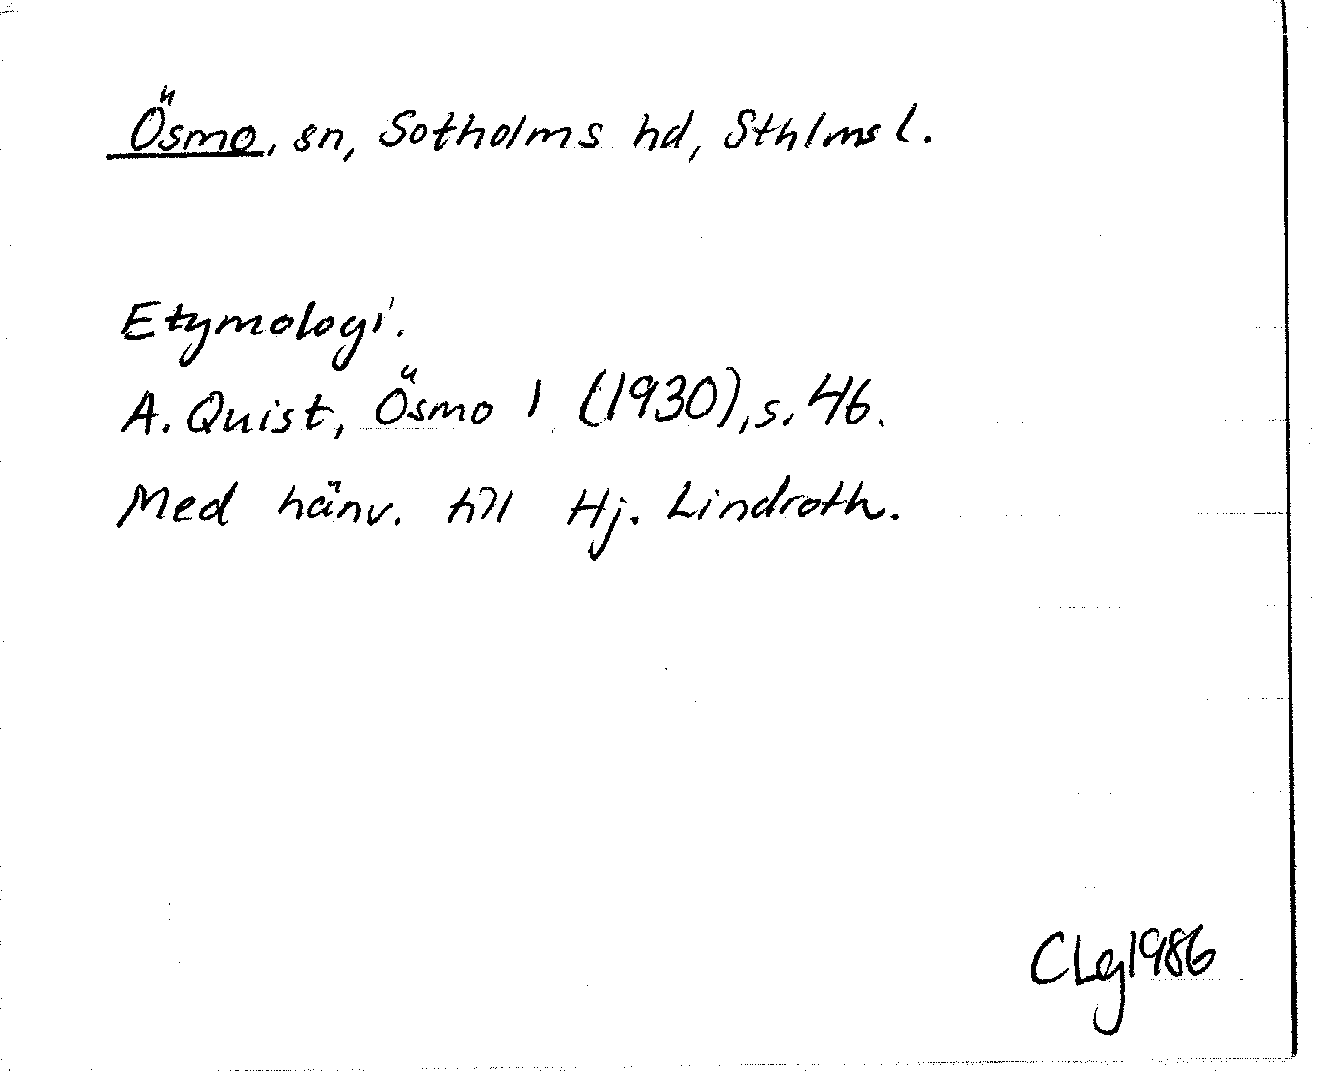 Ösmo, sn, Sotholms hd, Sthlms l.
Etymologi.
A. Quist, Ösmo 1 (1930), s. 46.
Med hänv. till Hj. Lindroth.
CLg 1986